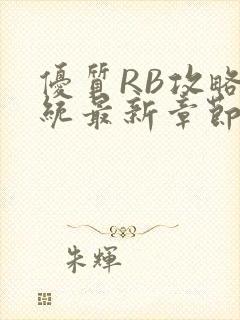 優質RB攻略
統最新章節
朱輝